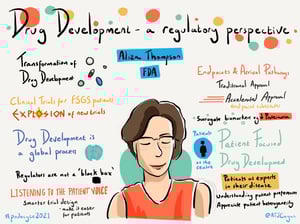 Drug Development - a regulatory perspective
Aliza Thompson
FDA
Transformation of
Drug Development
Clinical Trials for FSGS patients
EXPLOSION of new trials
Drug Development is
a global process
Regulators are not a 'black box'
LISTENING TO THE PATIENT VOICE
Smarter trial design
- make it easier
for patients
Endpoints & Arrival Pathways
Traditional Approval
Accelerated Approval
Surrogate biomarker eg Proteinuria
Patients
at the
centre
Patient Focused
Drug Development
Patients at experts
in their disease
Understanding patient preferences
Appreciate patient heterogeneity